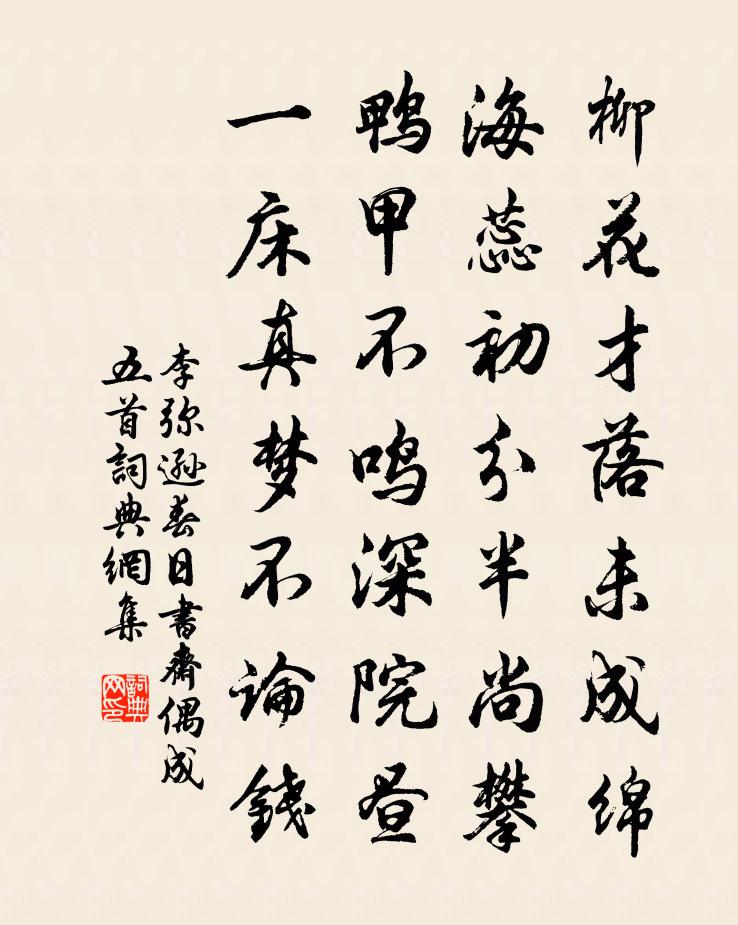 柳花才落未成绵
海蕊初分半尚攀
鸭甲不鸣深院昼
一床真梦不论錢
李弥遜春日書齋偶成
五首詞典網集
詞典网印